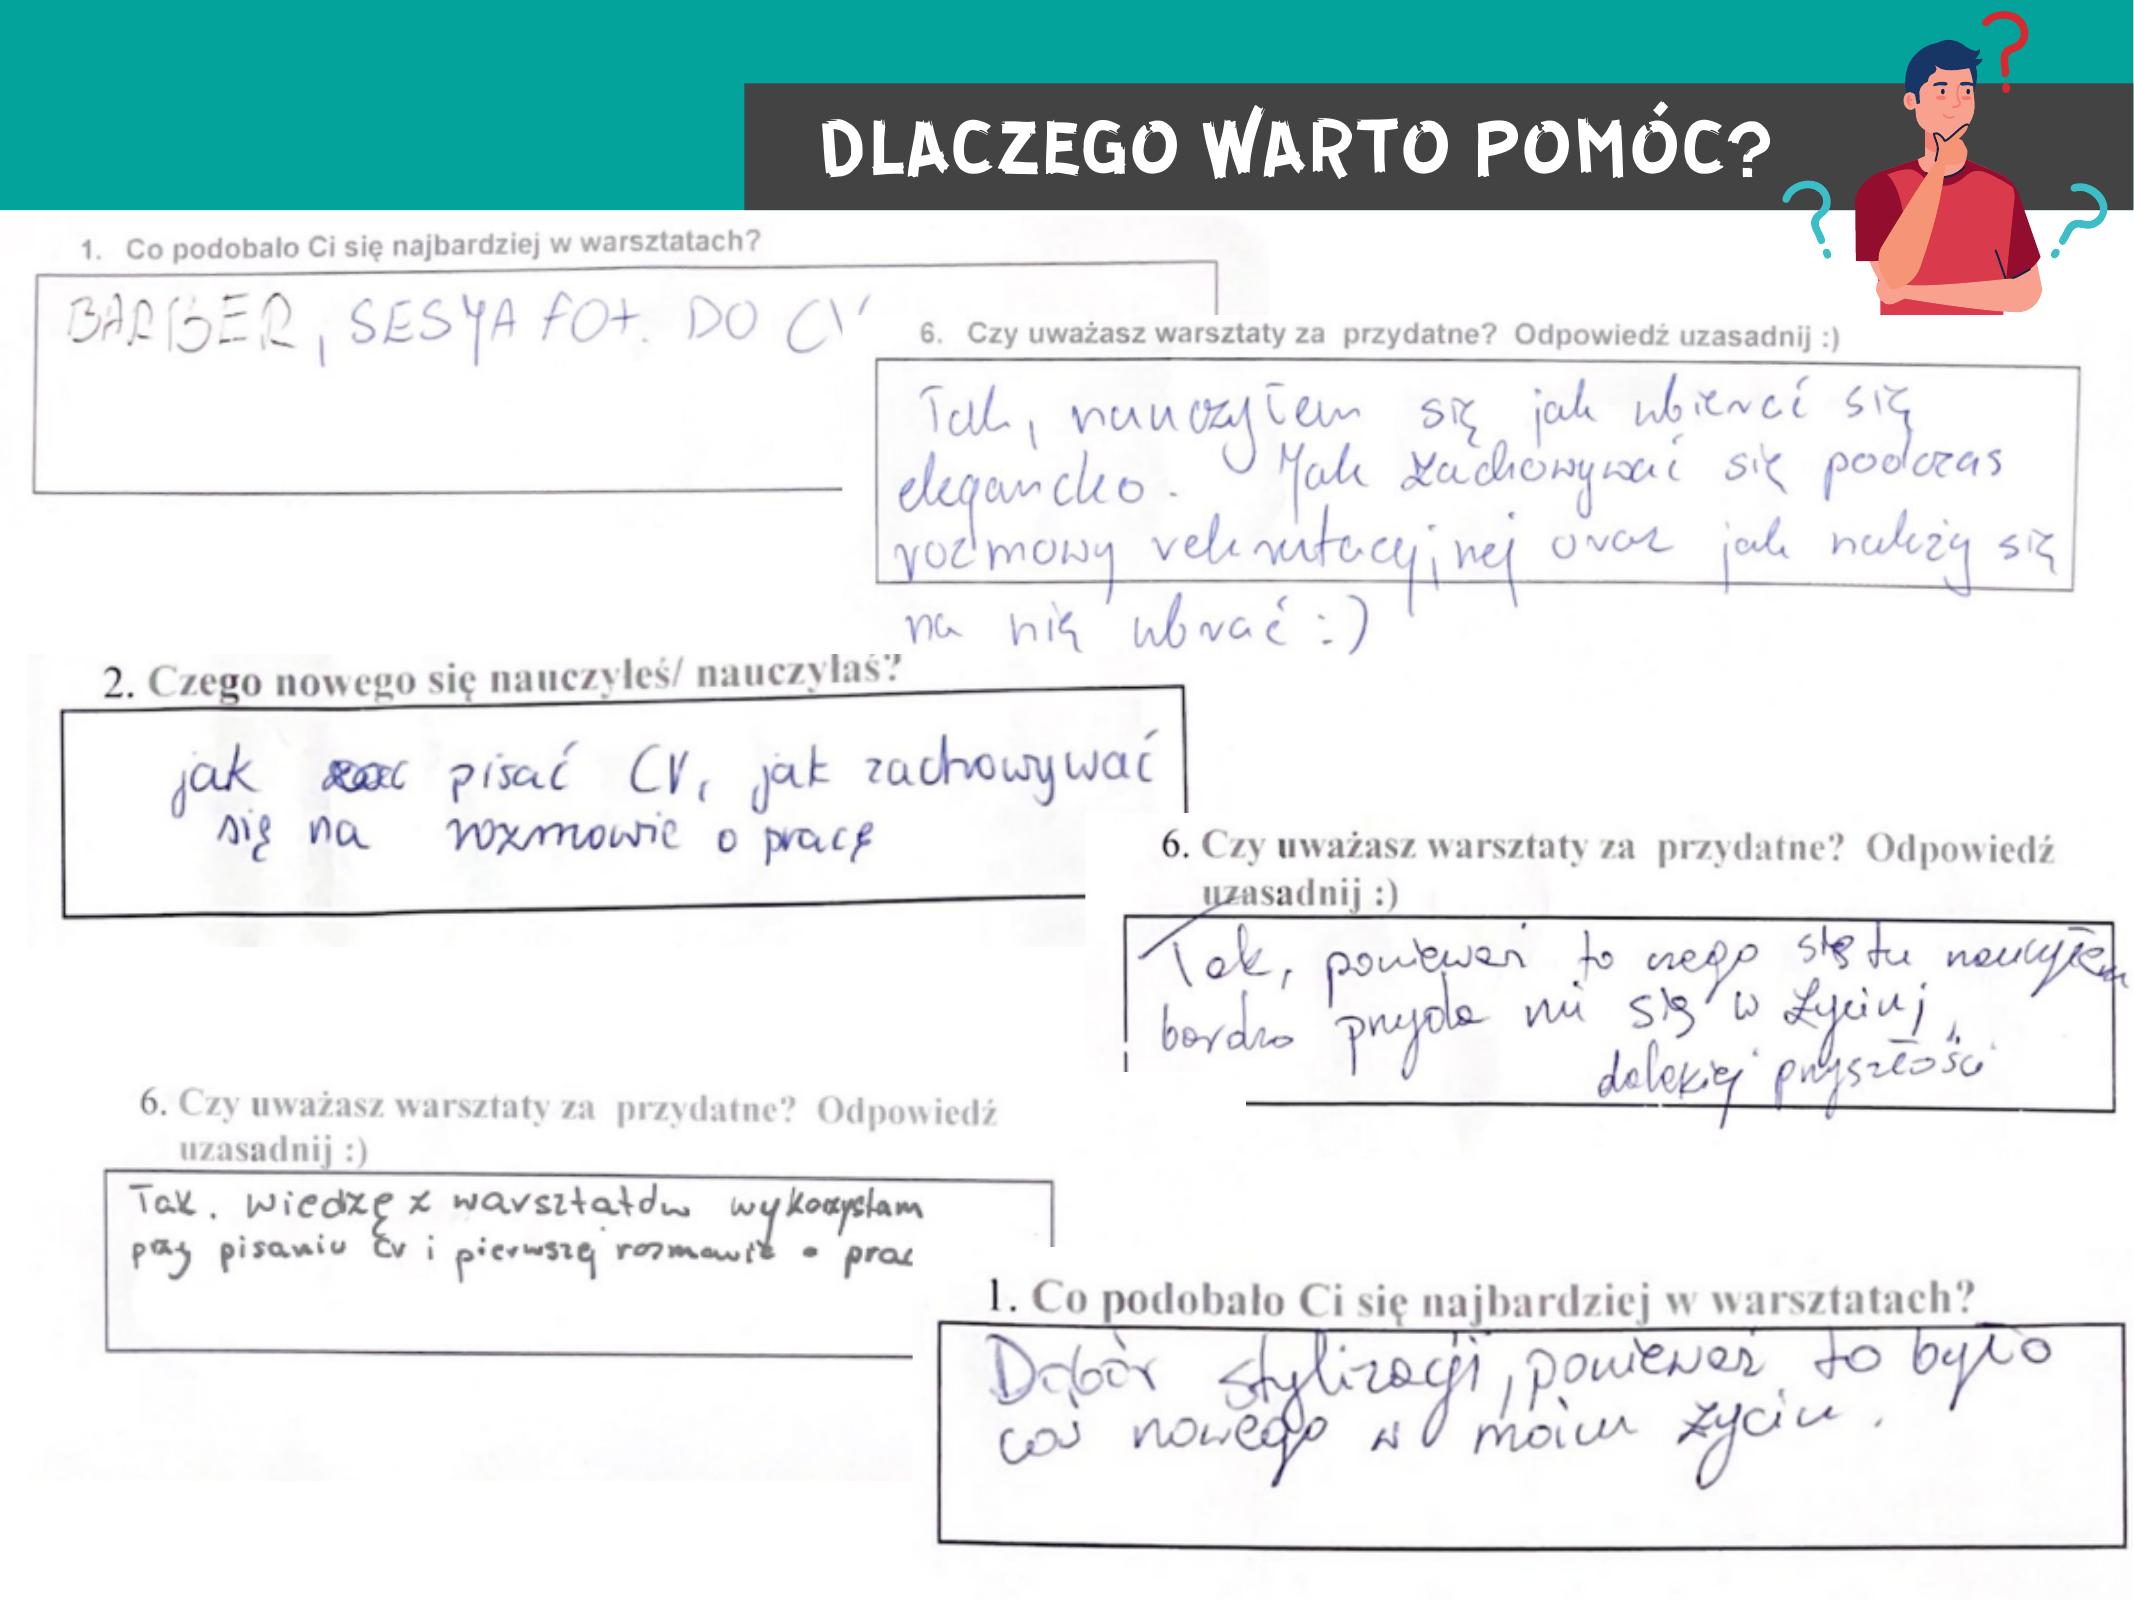 DLACZEGO WARTO POMÓC?
1. Co podobało Ci się najbardziej w warsztatach?
BARBER, SESYA FOT. DO CV
6. Czy uważasz warsztaty za przydatne? Odpowiedź uzasadnij :)
Tak, nauczyłem się jak ubierać się
elegancko. Jak zachowywać się podczas
rozmowy rekrutacyjnej oraz jak należy się
na nią ubrać :)
2. Czego nowego się nauczyłeś/ nauczyłaś?
jak pisać CV, jak zachowywać
się na rozmowie o pracę
6. Czy uważasz warsztaty za przydatne? Odpowiedź
uzasadnij :)
Tak, ponieważ to czego się tu nauczyłem
bardzo przyda mi się w życiu,
dalekiej przyszłości
6. Czy uważasz warsztaty za przydatne? Odpowiedź
uzasadnij :)
Tak. wiedzę z warsztatów wykorzystam
przy pisaniu cv i pierwszej rozmowie o prac
1. Co podobało Ci się najbardziej w warsztatach?
Dobór stylizacji, ponieważ to było
coś nowego w moim życiu.